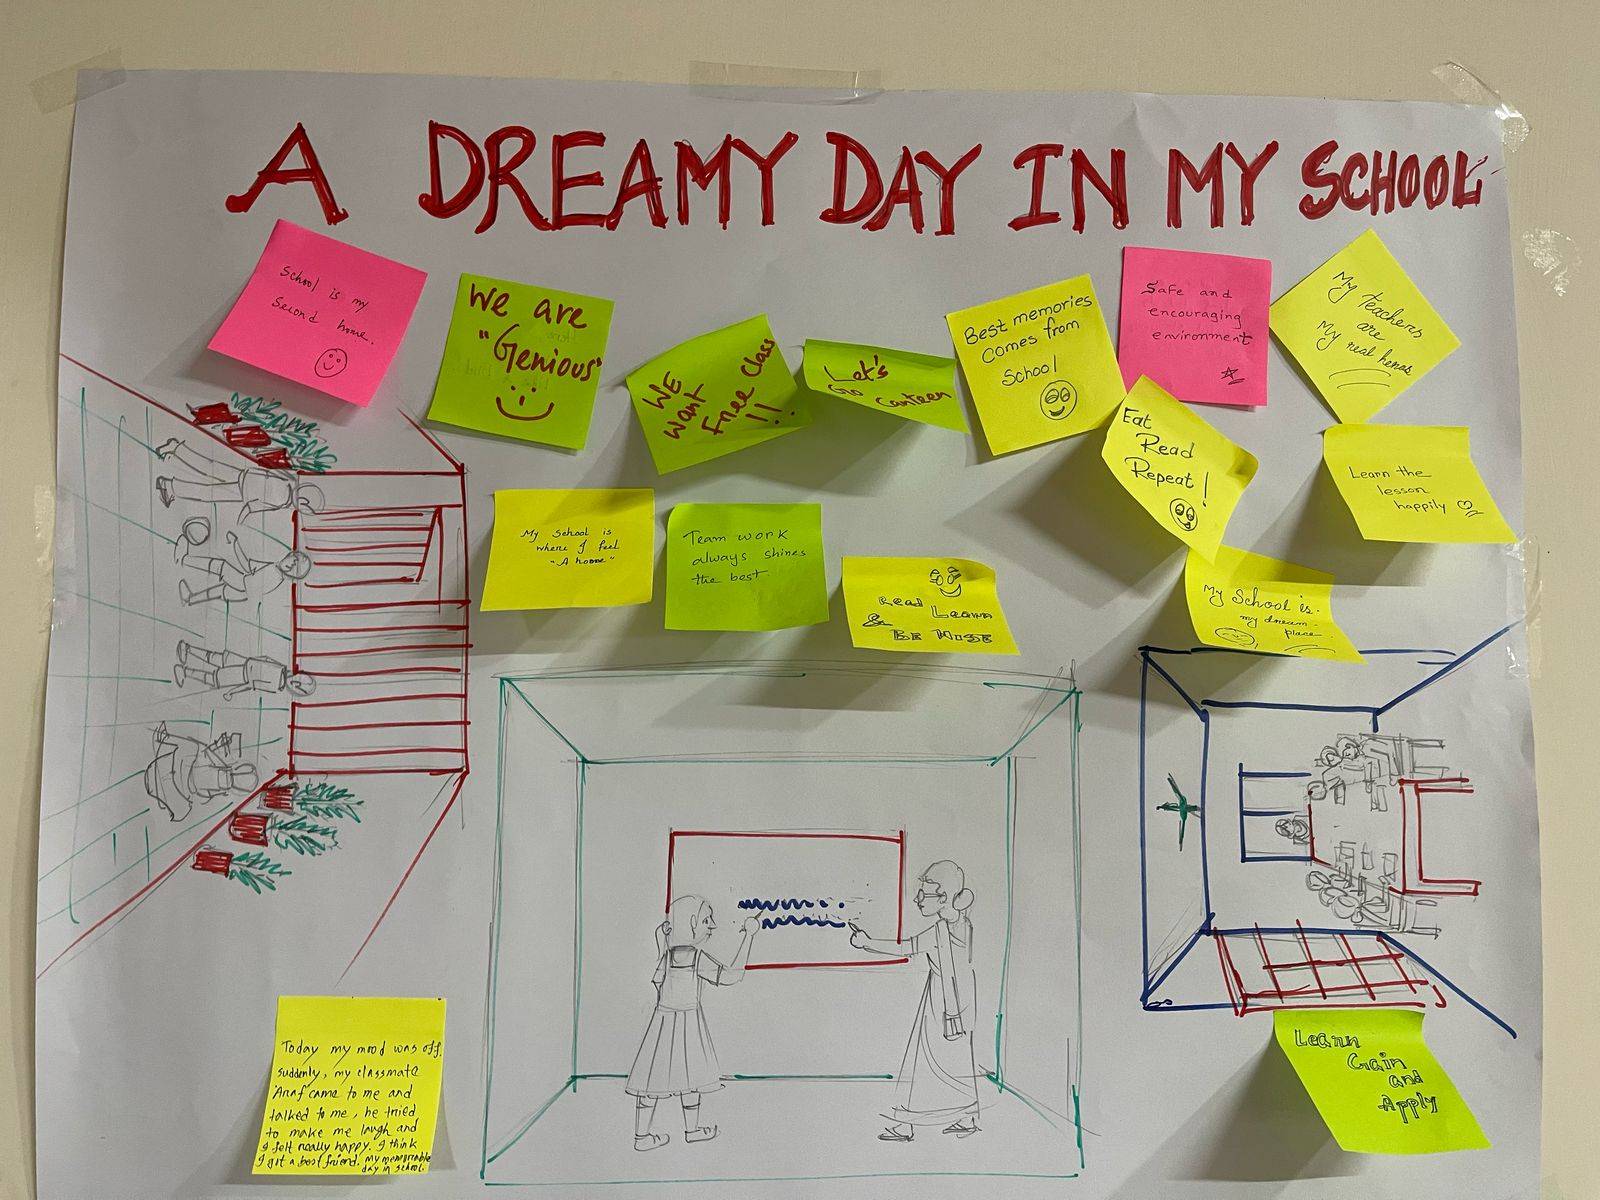 A DREAMY DAY IN MY SCHOOL
School is my
Second home.
We are
"Genious"
WE
Want
Free Class
!!
Let's
Go Canteen
Best memories
comes from
School
Safe and
encouraging
environment
My Teachers
are
My real heroes
Eat
Read
Repeat!
Learn the
lesson
happily
My School is
where I feel
"A home"
Team work
always shines
the best.
Read Learn
& BE WISE
My School is.
my dream
place.
Today my mood was off.
suddenly, my classmate
Araf came to me and
talked to me, he tried
to make me laugh and
I felt really happy. I think
I got a best friend. My memorable
day in school.
Learn
Gain
and
Apply